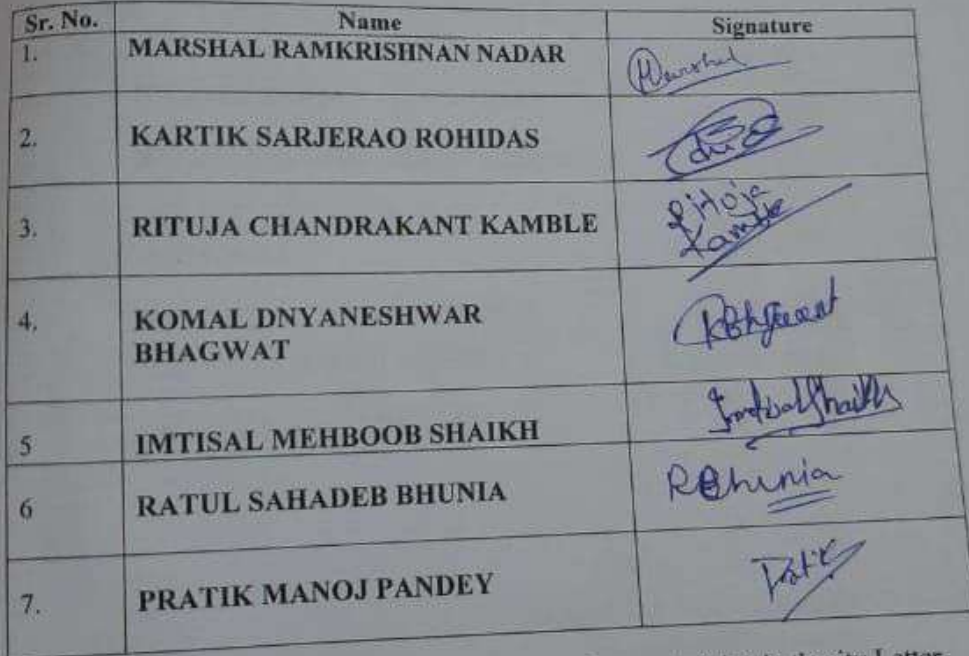 Sr. No. Name Signature
1. MARSHAL RAMKRISHNAN NADAR Marshal
2. KARTIK SARJERAO ROHIDAS
3. RITUJA CHANDRAKANT KAMBLE Rituja
Kamble
4. KOMAL DNYANESHWAR
BHAGWAT KBhagwat
5 IMTISAL MEHBOOB SHAIKH Imtisal Shaikh
6 RATUL SAHADEB BHUNIA RBhunia
7. PRATIK MANOJ PANDEY Pratik
Letter